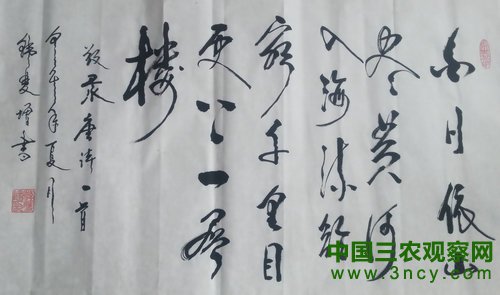 白日依山
尽黄河
入海流欲
穷千里目
更上一层
楼
敬录唐诗一首
甲午年夏月
书
中国三农观察网
www.3ncy.com